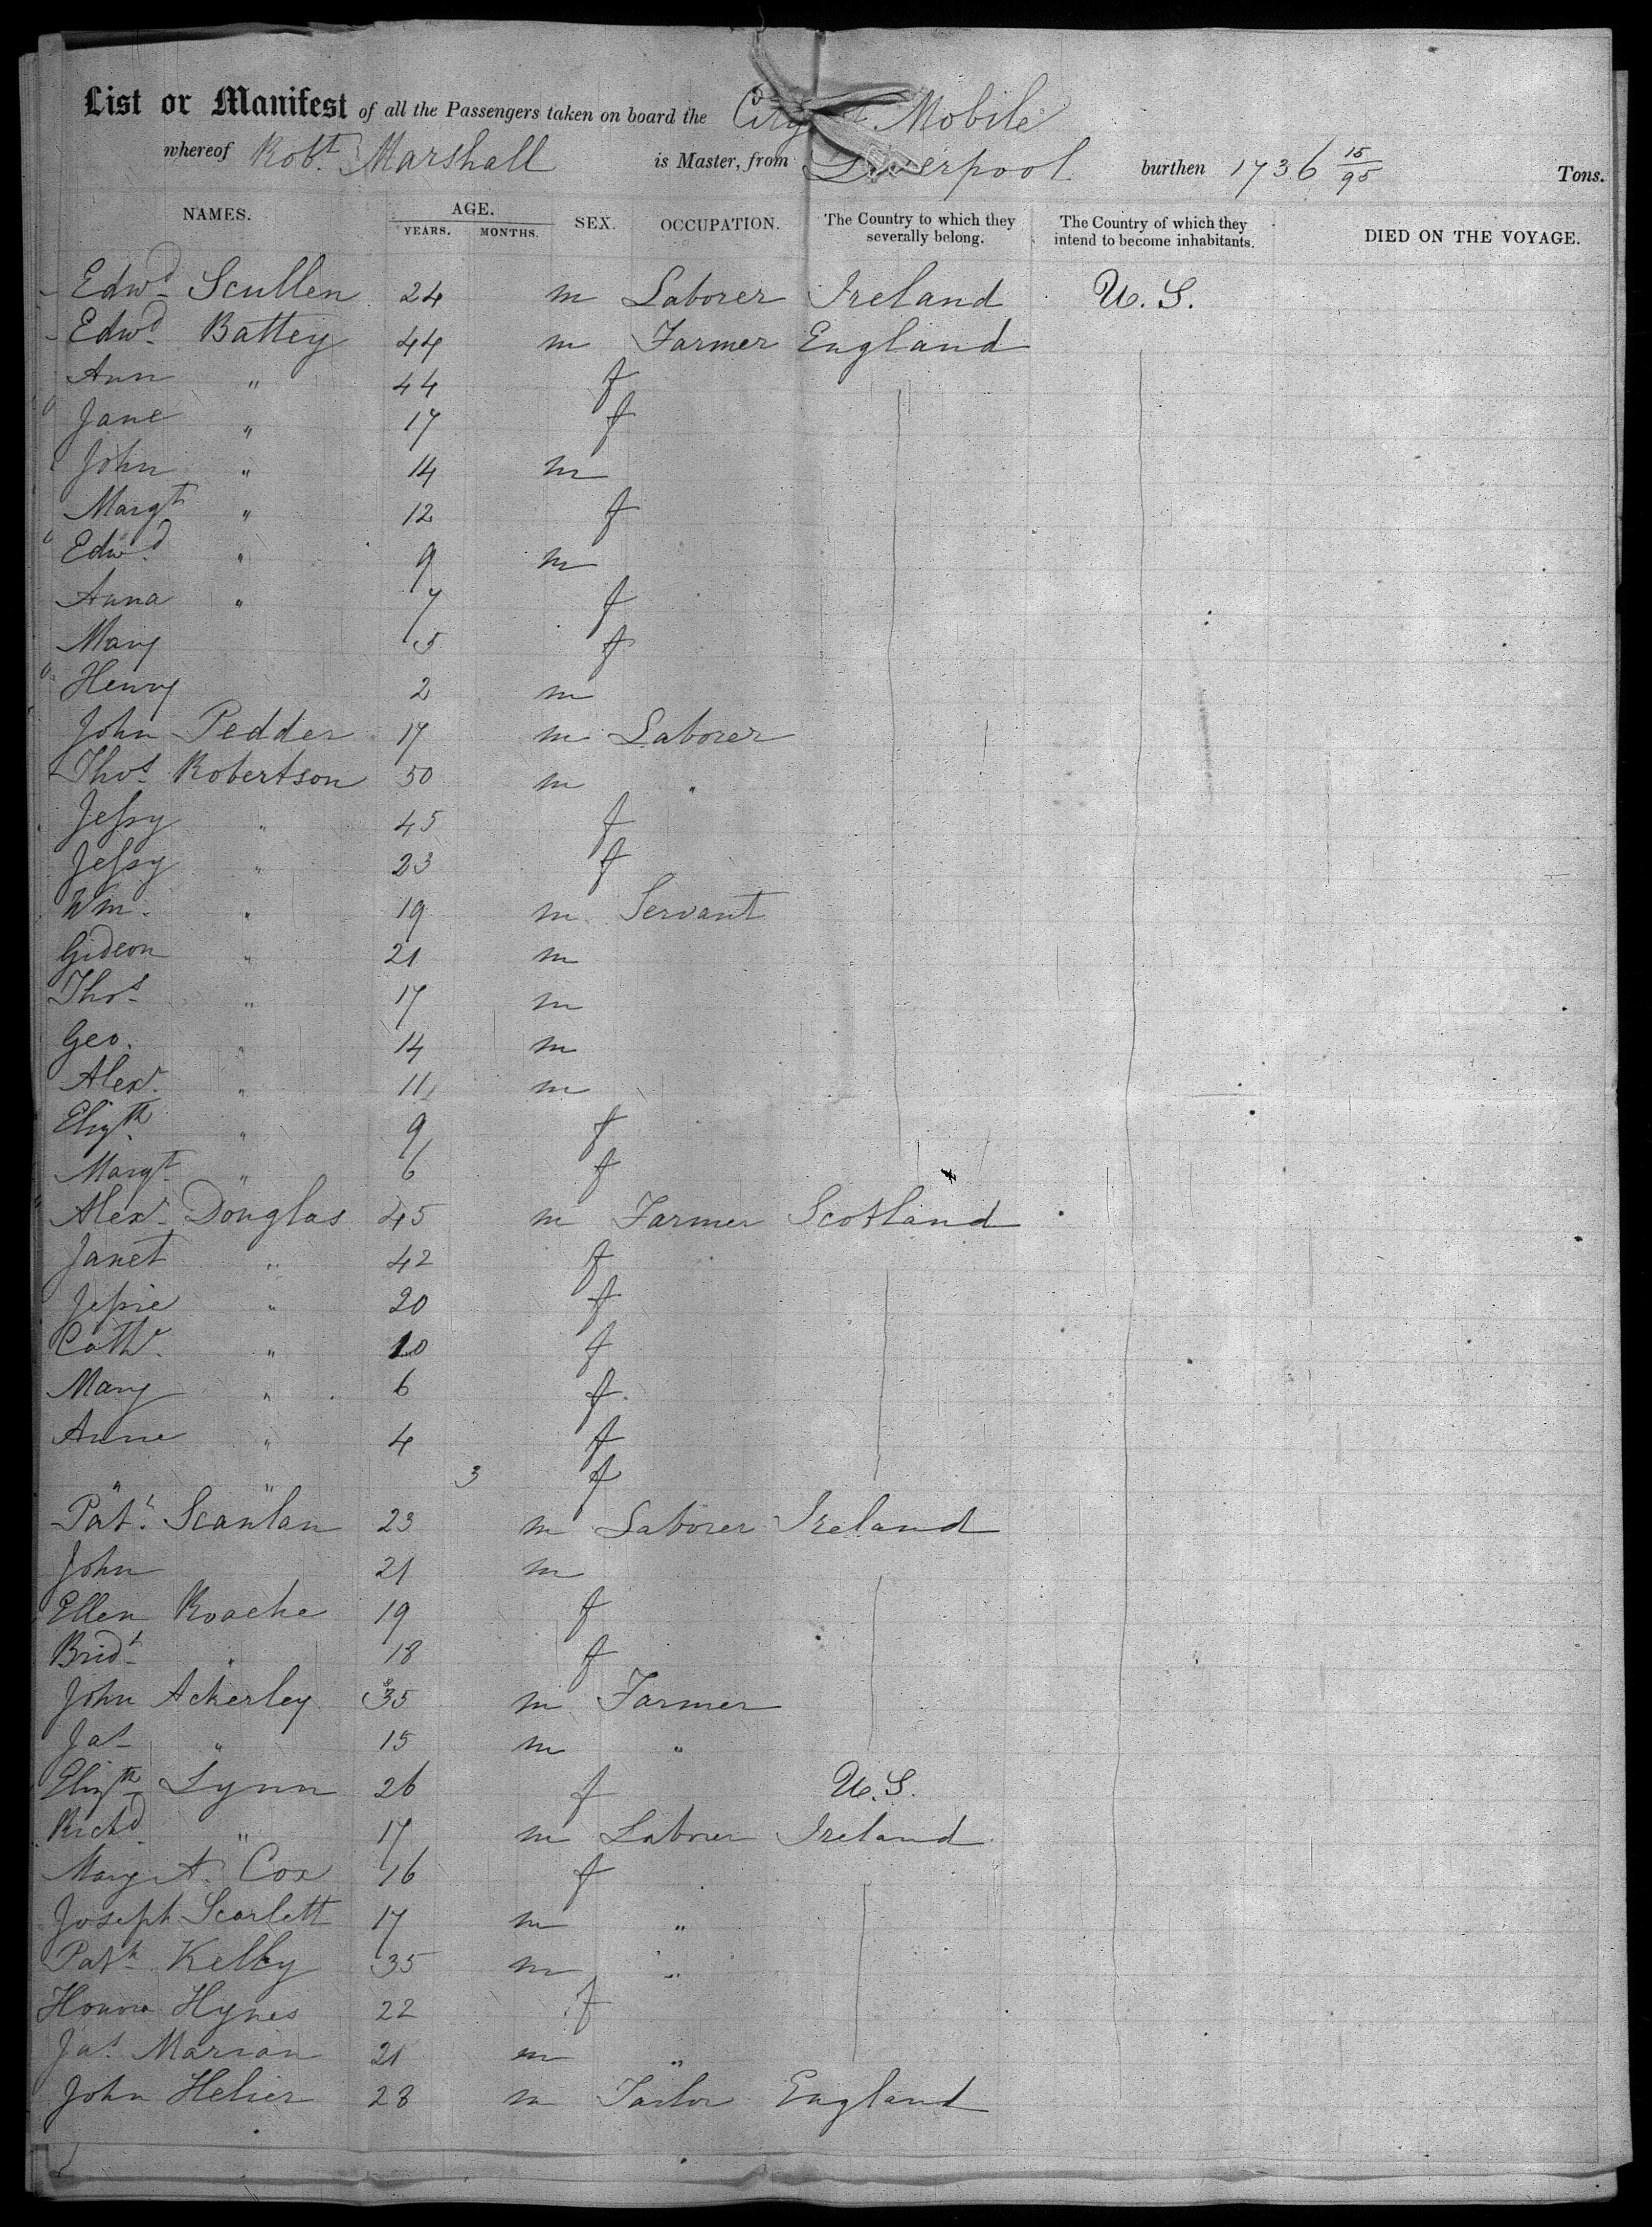 List or Manifest of all the Passengers taken on board the City of Mobile
whereof Robt. Marshall is Master, from Liverpool burthen 1736 15/95 Tons.
NAMES. AGE. YEARS. MONTHS. SEX. OCCUPATION. The Country to which they severally belong. The Country of which they intend to become inhabitants. DIED ON THE VOYAGE.
Edwd Scullen 24 m Laborer Ireland U.S.
Edwd Battey 44 m Farmer England
Ann " 44 f
Jane " 17 f
John " 14 m
Margt " 12 f
Edwd " 9 m
Anna " 7 f
Mary 5 f
Henry 2 m
John Pedder 17 m Laborer
Thos Robertson 50 m "
Jessy " 45 f
Jessy " 23 f
Wm. " 19 m Servant
Gideon " 21 m
Thos " 17 m
Geo. " 14 m
Alexr " 11 m
Elizth " 9 f
Margt " 6 f
Alexr Douglas 45 m Farmer Scotland
Janet " 42 f
Jessie " 20 f
Cathe. " 10 f
Mary " 6 f
Anne " 4 f
" " 3 f
Patk. Scanlan 23 m Laborer Ireland
John 21 m
Ellen Roache 19 f
Bridt " 18 f
John Ackerley 35 m Farmer
Jas " 15 m "
Elizth Lynn 26 f U.S.
Richd " 17 m Laborer Ireland
Mary A. Cox 16 f
Joseph Scarlett 17 m "
Patk Kelly 35 m "
Honora Hynes 22 f
Jas. Marian 21 m "
John Helier 28 m Tailor England